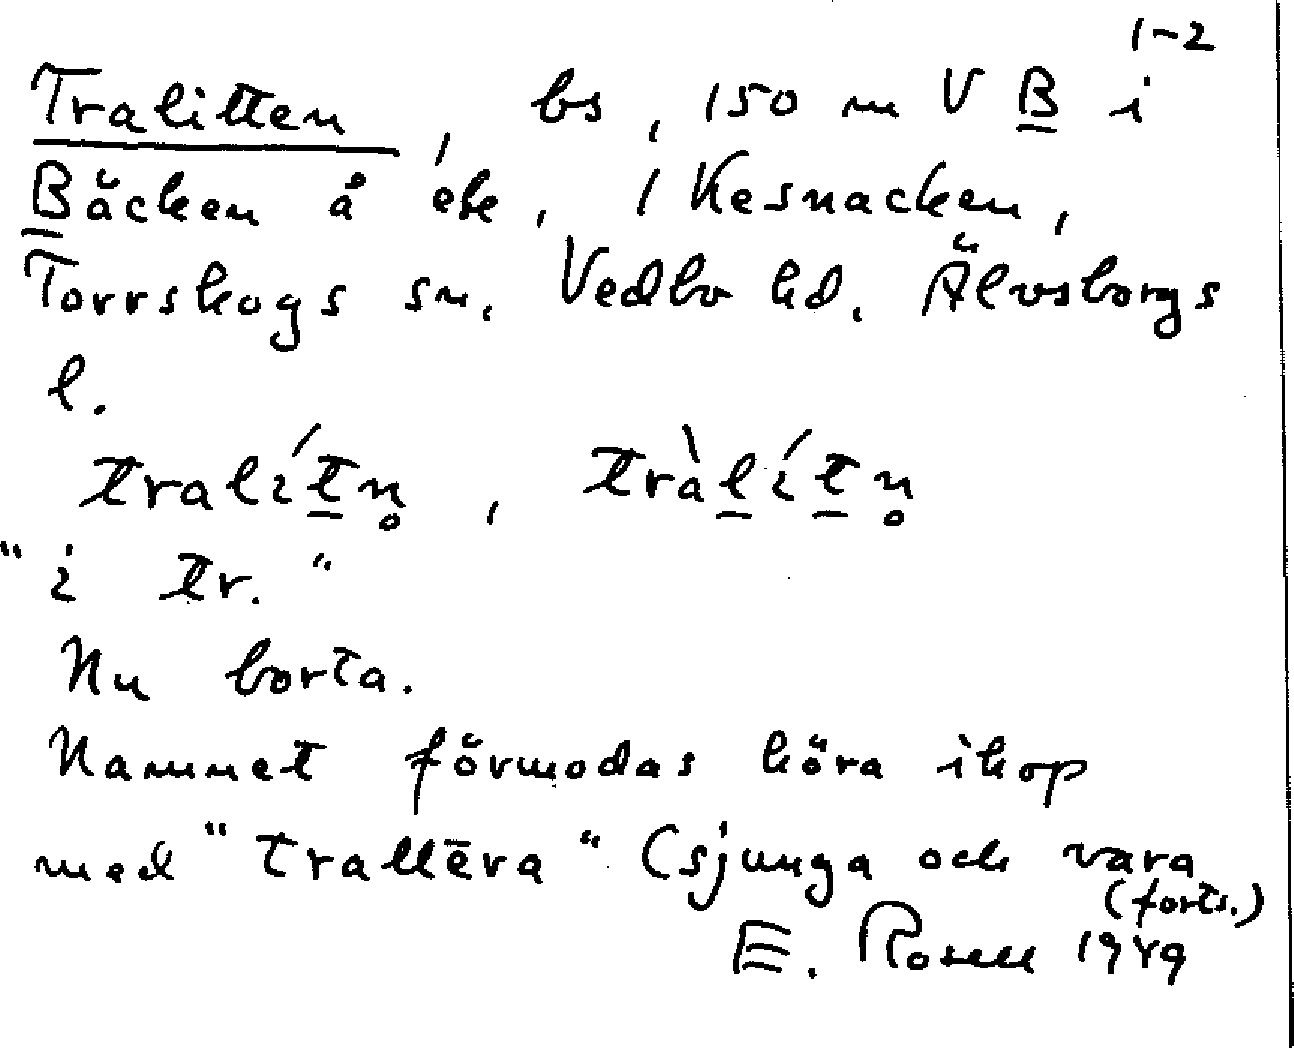 1-2
Tralitten, bs, 150 m V B i
Bäcken å ek, 1 Kesnacken,
Torrskogs sn. Vedbo hd. Älvsborgs
l.
tralítn̥, tràlítn̥
"i tr."
Nu borta.
Namnet förmodas höra ihop
med "trallēra" (sjunga och vara
(forts.)
E. Rosell 1949